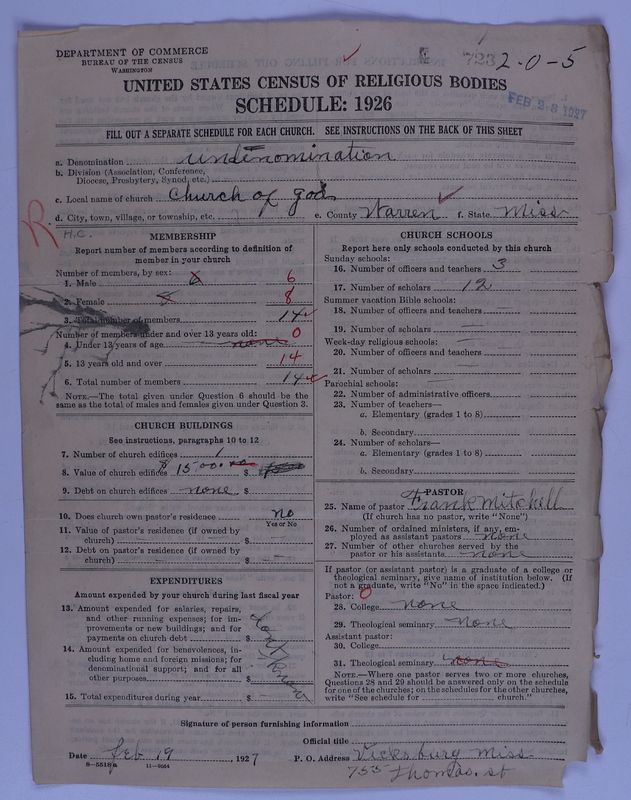 DEPARTMENT OF COMMERCE
BUREAU OF THE CENSUS
WASHINGTON
723 2-0-5
UNITED STATES CENSUS OF RELIGIOUS BODIES
SCHEDULE: 1926
FEB 28 1927
FILL OUT A SEPARATE SCHEDULE FOR EACH CHURCH. SEE INSTRUCTIONS ON THE BACK OF THIS SHEET
a. Denomination undenomination
b. Division (Association, Conference,
Diocese, Presbytery, Synod, etc.)
c. Local name of church Church of god
d. City, town, village, or township, etc. e. County Warren f. State Miss
R
H.C.
MEMBERSHIP
Report number of members according to definition of
member in your church
Number of members, by sex:
1. Male 6
2. Female 8
3. Total number of members 14
Number of members under and over 13 years old: 0
4. Under 13 years of age none
5. 13 years old and over 14
6. Total number of members 14
NOTE.—The total given under Question 6 should be the
same as the total of males and females given under Question 3.
CHURCH BUILDINGS
See instructions, paragraphs 10 to 12
7. Number of church edifices 1
8. Value of church edifices $1500.00 $
9. Debt on church edifices none $
10. Does church own pastor's residence no
Yes or No
11. Value of pastor's residence (if owned by
church) $
12. Debt on pastor's residence (if owned by
church) $
EXPENDITURES
Amount expended by your church during last fiscal year
13. Amount expended for salaries, repairs,
and other running expenses; for im-
provements or new buildings; and for
payments on church debt $
14. Amount expended for benevolences, in-
cluding home and foreign missions; for
denominational support; and for all
other purposes $
15. Total expenditures during year $
dont know
CHURCH SCHOOLS
Report here only schools conducted by this church
Sunday schools:
16. Number of officers and teachers 3
17. Number of scholars 12
Summer vacation Bible schools:
18. Number of officers and teachers
19. Number of scholars
Week-day religious schools:
20. Number of officers and teachers
21. Number of scholars
Parochial schools:
22. Number of administrative officers
23. Number of teachers—
a. Elementary (grades 1 to 8)
b. Secondary
24. Number of scholars—
a. Elementary (grades 1 to 8)
b. Secondary
PASTOR
25. Name of pastor Frank Mitchell
(If church has no pastor, write "None")
26. Number of ordained ministers, if any, em-
ployed as assistant pastors none
27. Number of other churches served by the
pastor or his assistants none
If pastor (or assistant pastor) is a graduate of a college or
theological seminary, give name of institution below. (If
not a graduate, write "No" in the space indicated.)
Pastor: 0
28. College none
29. Theological seminary none
Assistant pastor:
30. College
31. Theological seminary none
NOTE.—Where one pastor serves two or more churches,
Questions 28 and 29 should be answered only on the schedule
for one of the churches; on the schedules for the other churches,
write "See schedule for church."
Signature of person furnishing information
Official title
Date Feb 19, 1927 P. O. Address Vicksburg Miss
8-5518a 11-9084
755 Thomas. st